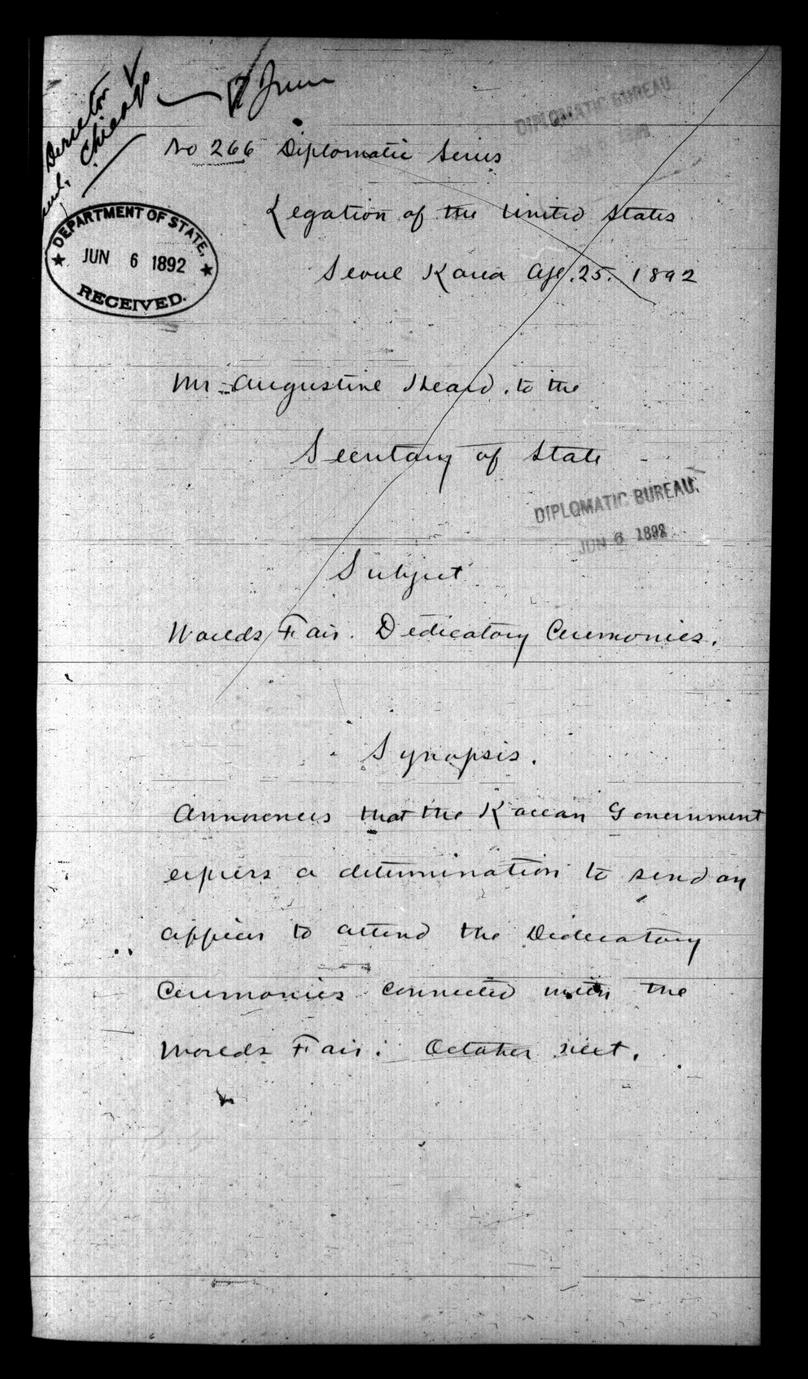 Director
Chicago
7 June
DIPLOMATIC BUREAU
No 266 Diplomatic Series
Legation of the United States
Seoul Korea Apl. 25. 1892
DEPARTMENT OF STATE,
JUN 6 1892
RECEIVED.
Mr. Augustine Heard, to the
Secretary of State
DIPLOMATIC BUREAU.
JUN 6 1892
Subject
Worlds Fair. Dedicatory Ceremonies.
Synopsis.
Announces that the Korean Government
express a determination to send an
officer to attend the Dedicatory
Ceremonies connected with the
Worlds Fair: October next.